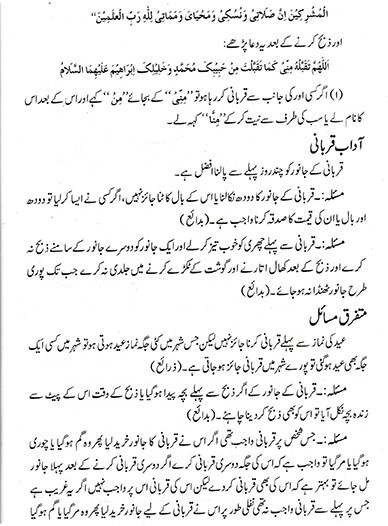 الْمُشْرِکِیْنَ اِنَّ صَلَاتِیْ وَنُسُکِیْ وَمَحْیَایَ وَمَمَاتِیْ لِلّٰہِ رَبِّ الْعٰلَمِیْنَ“
اور ذبح کرنے کے بعد یہ دعا پڑھے:
اَللّٰھُمَّ تَقَبَّلْہُ مِنِّیْ کَمَا تَقَبَّلْتَ مِنْ حَبِیْبِکَ مُحَمَّدٍ وَخَلِیْلِکَ اِبْرَاھِیْمَ عَلَیْھِمَا السَّلَامُ
(۱) اگر کسی اور کی جانب سے قربانی کر رہا ہو تو ”مِنِّیْ“ کے بجائے ”مِنْ“ کہے اور اس کے بعد اس
کا نام لے یا سب کی طرف سے نیت کر کے ”مِنَّا“ کہہ لے۔
آداب قربانی
قربانی کے جانور کو چند روز پہلے سے پالنا افضل ہے۔
مسئلہ:۔ قربانی کے جانور کا دودھ نکالنا یا اس کے بال کاٹنا جائز نہیں، اگر کسی نے ایسا کر لیا تو دودھ
اور بال یا ان کی قیمت کا صدقہ کرنا واجب ہے۔ (بدائع)
مسئلہ:۔ قربانی سے پہلے چھری کو خوب تیز کر لے اور ایک جانور کو دوسرے جانور کے سامنے ذبح نہ
کرے اور ذبح کے بعد کھال اتارنے اور گوشت کے ٹکڑے کرنے میں جلدی نہ کرے جب تک پوری
طرح جانور ٹھنڈا نہ ہو جائے۔ (بدائع)
متفرق مسائل
عید کی نماز سے پہلے قربانی کرنا جائز نہیں لیکن جس شہر میں کئی جگہ نماز عید ہوتی ہو تو شہر میں کسی ایک
جگہ بھی عید ہو گئی تو پورے شہر میں قربانی جائز ہو جاتی ہے۔ (ذرائع)
مسئلہ:۔ قربانی کے جانور کے اگر ذبح سے پہلے بچہ پیدا ہو گیا یا ذبح کے وقت اس کے پیٹ سے
زندہ بچہ نکل آیا تو اس کو بھی ذبح کر دینا چاہئے۔ (بدائع)
مسئلہ:۔ جس شخص پر قربانی واجب تھی اگر اس نے قربانی کا جانور خرید لیا پھر وہ گم ہو گیا یا چوری
ہو گیا یا مر گیا تو واجب ہے کہ اس کی جگہ دوسری قربانی کرے اگر دوسری قربانی کرنے کے بعد پہلا جانور
مل جائے تو بہتر ہے کہ اس کی بھی قربانی کر دے لیکن اس کی قربانی اس پر واجب نہیں اگر یہ غریب ہے
جس پر پہلے سے قربانی واجب نہ تھی نفلی طور پر اس نے قربانی کے لیے جانور خرید لیا پھر وہ مر گیا یا گم ہو گیا